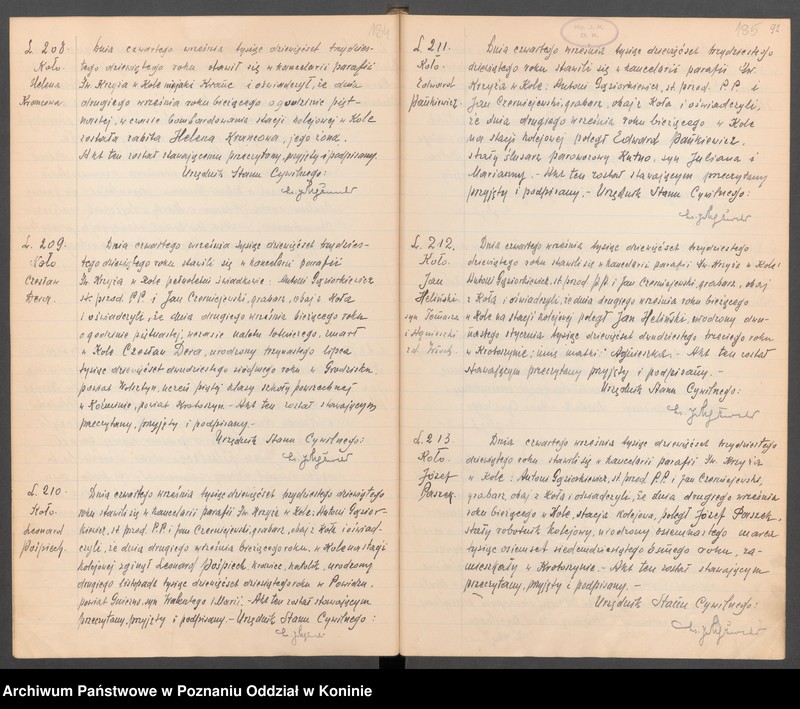 184
L. 208.
Koło.
Helena
Krancowa.
Dnia czwartego września tysiąc dziewięćset trzydzies-
tego dziewiątego roku stawił się w kancelarii parafii
Św. Krzyża w Kole niejaki Kranc i oświadczył, że dnia
drugiego września roku bieżącego o godzinie pięt-
nastej, w czasie bombardowania stacji kolejowej w Kole
została zabita Helena Krancowa, jego żona.
Akt ten został stawającemu przeczytany, przyjęty i podpisany.
Urzędnik Stanu Cywilnego:
L. 209.
Koło
Czesław
Dera.
Dnia czwartego września tysiąc dziewięćset trzydzies-
tego dziewiątego roku stawili się w kancelarii parafii
Św. Krzyża w Kole pełnoletni świadkowie: Antoni Gąsiorkiewicz
st. przod. P.P. i Jan Czerniejewski, grabarz, obaj z Koła
i oświadczyli, że dnia drugiego września bieżącego roku
o godzinie piętnastej, w czasie nalotu lotniczego, zmarł
w Kole Czesław Dera, urodzony trzynastego lipca
tysiąc dziewięćset dwudziestego siódmego roku w Grodzisku,
powiat Wolsztyn, uczeń piątej klasy szkoły powszechnej
w Koźminie, powiat Krotoszyn. - Akt ten został stawającym
przeczytany, przyjęty i podpisany. -
Urzędnik Stanu Cywilnego:
L. 210
Koło.
Leonard
Pośpiech.
Dnia czwartego września tysiąc dziewięćset trzydziestego dziewiątego
roku stawili się w kancelarii parafii Św. Krzyża w Kole: Antoni Gąsior-
kiewicz, st. przod. P.P. i Jan Czerniejewski, grabarz, obaj z Koła i oświad-
czyli, że dnia drugiego września bieżącego roku, w Kole na stacji
kolejowej zginął Leonard Pośpiech krawiec, katolik, urodzony
drugiego listopada tysiąc dziewięćset dziewiątego roku w Powidzu,
powiat Gniezno, syn Walentego i Marii. - Akt ten został stawającym
przeczytany, przyjęty i podpisany. - Urzędnik Stanu Cywilnego:
185
92
L. 211.
Koło.
Edward
Pańkiewicz.
Dnia czwartego września tysiąc dziewięćset trzydziestego
dziewiątego roku stawili się w kancelarii parafii Św.
Krzyża w Kole: Antoni Gąsiorkiewicz, st. przod. P.P. i
Jan Czerniejewski, grabarz, obaj z Koła i oświadczyli,
że dnia drugiego września roku bieżącego w Kole
na stacji kolejowej poległ Edward Pańkiewicz,
stały ślusarz parowozowy Kutno, syn Juliana i
Marianny. - Akt ten został stawającym przeczytany
przyjęty i podpisany. - Urzędnik Stanu Cywilnego:
L. 212.
Koło.
Jan
Heliński
syn Tomasza
i Agnieszki
z d.
Dnia czwartego września tysiąc dziewięćset trzydziestego
dziewiątego roku stawili się w kancelarii parafii Św. Krzyża w Kole:
Antoni Gąsiorkiewicz, st. przod. P.P. i Jan Czerniejewski, grabarz, obaj
z Koła, i oświadczyli, że dnia drugiego września roku bieżącego
w Kole na stacji kolejowej poległ Jan Heliński, urodzony dwu-
nastego stycznia tysiąc dziewięćset dwudziestego trzeciego roku
w Krotoszynie; imię matki: Agnieszka. - Akt ten został
stawającym przeczytany przyjęty i podpisany. -
Urzędnik Stanu Cywilnego:
L. 213
Koło.
Józef
Paszek.
Dnia czwartego września tysiąc dziewięćset trzydziestego
dziewiątego roku stawili się w kancelarii parafii Św. Krzyża
w Kole: Antoni Gąsiorkiewicz, st. przod. P.P. i Jan Czerniejewski,
grabarz, obaj z Koła i oświadczyli, że dnia drugiego września
roku bieżącego w Kole, stacja kolejowa, poległ Józef Paszek,
stały robotnik kolejowy, urodzony osiemnastego marca
tysiąc osiemset siedemdziesiątego ósmego roku, za-
mieszkały w Krotoszynie. - Akt ten został stawającym
przeczytany, przyjęty i podpisany. -
Urzędnik Stanu Cywilnego:
Archiwum Państwowe w Poznaniu Oddział w Koninie